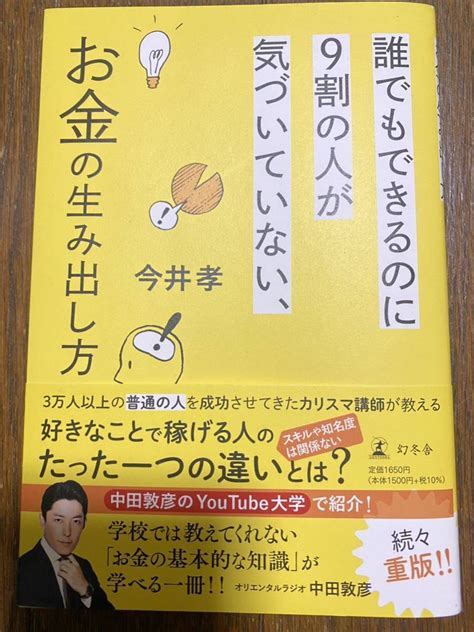 誰でもできるのに
9割の人が
気づいていない、
お金の生み出し方
今井孝
3万人以上の普通の人を成功させてきたカリスマ講師が教える
好きなことで稼げる人の
たった一つの違いとは?
スキルや知名度
は関係ない
幻冬舎
定価1650円
(本体1500円+税10%)
中田敦彦のYouTube大学で紹介!
学校では教えてくれない
「お金の基本的な知識」が
学べる一冊!!
オリエンタルラジオ 中田敦彦
続々
重版!!